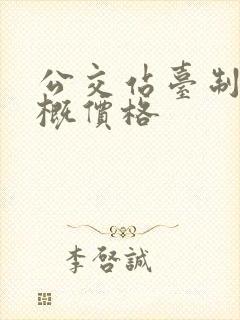 公交佔臺制
概價格
李啓誠